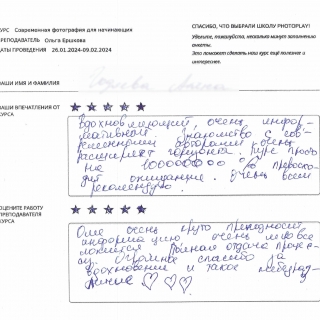 КУРС Современная фотография для начинающих
ПРЕПОДАВАТЕЛЬ Ольга Ершкова
ДАТЫ ПРОВЕДЕНИЯ 26.01.2024-09.02.2024
СПАСИБО, ЧТО ВЫБРАЛИ ШКОЛУ PHOTOPLAY!
Уделите, пожалуйста, несколько минут заполнению
анкеты.
Это поможет сделать наш курс ещё полезнее и
интереснее.
ВАШИ ИМЯ И ФАМИЛИЯ
ВАШИ ВПЕЧАТЛЕНИЯ ОТ
КУРСА
Вдохновляющий, очень инфор-
мативный. Знакомство с сов-
ременными авторами очень
расширяет горизонты. Курс просто
на %
ожидание. Очень всем
рекомендую.
ОЦЕНИТЕ РАБОТУ
ПРЕПОДАВАТЕЛЯ
КУРСА
Оля очень круто преподносит
информацию очень мне все
Полная отдача процес-
су. Огромное спасибо за
вдохновение и такое